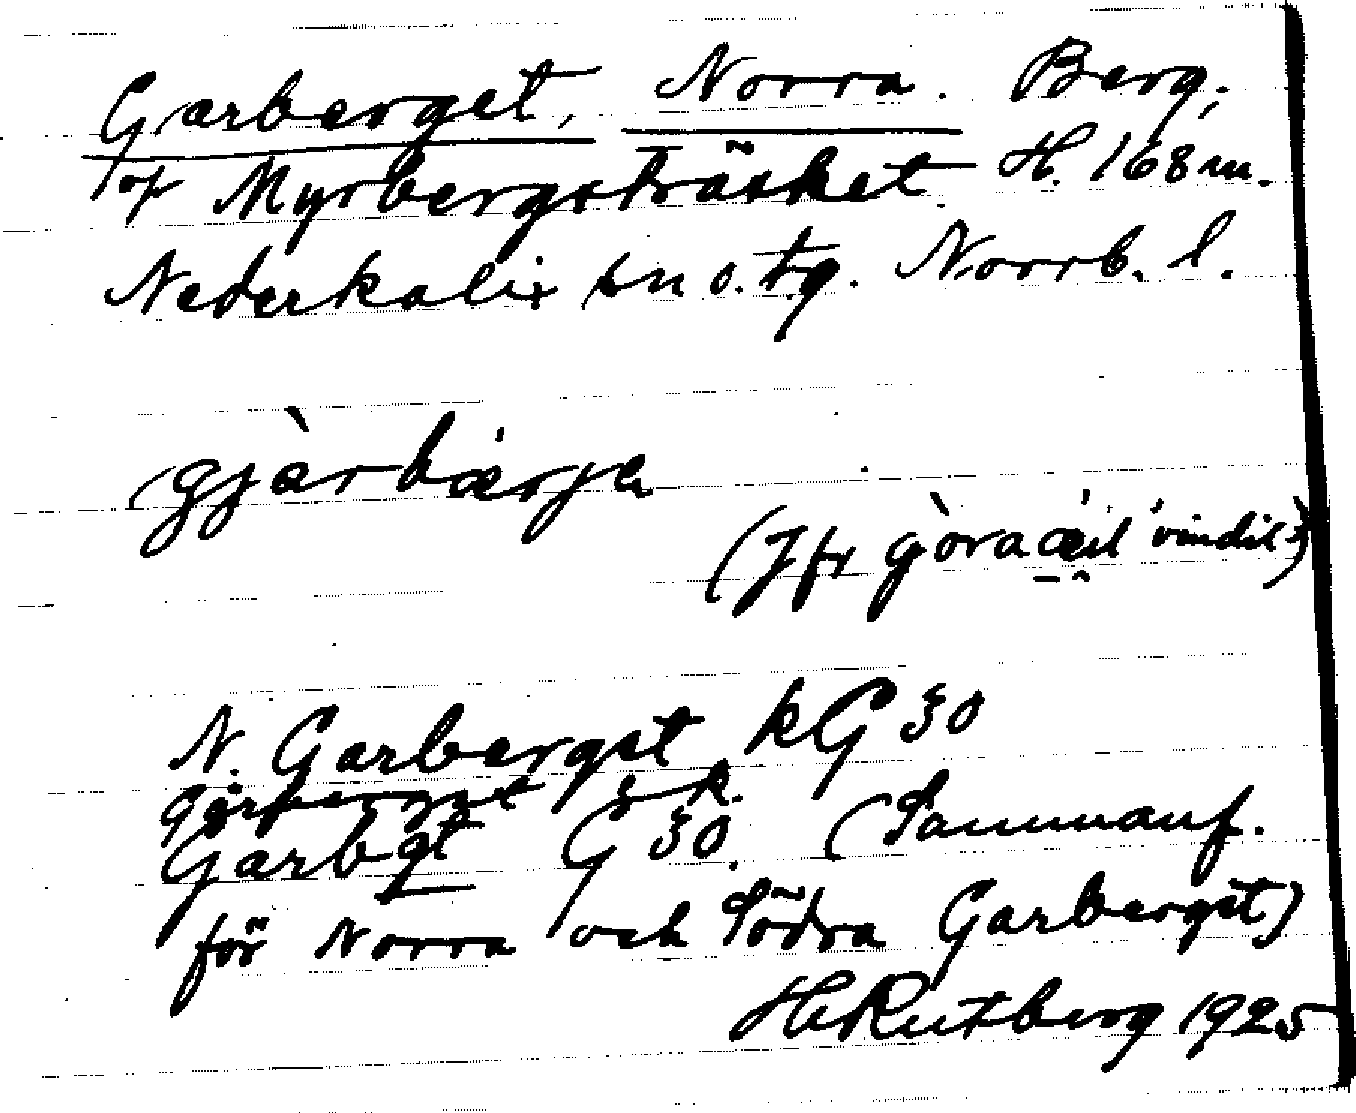 Garberget, Norra. Berg;
of Myrbergsträsket H. 168 m.
Nederkalix sn o. tg. Norrb. l.
gjàrbærjə
(Jfr gòra
N. Garberget kG 30
g. k.
Garbgt G 30. (Sammanf.
för Norra och Södra Garberget)
H Rutberg 1925